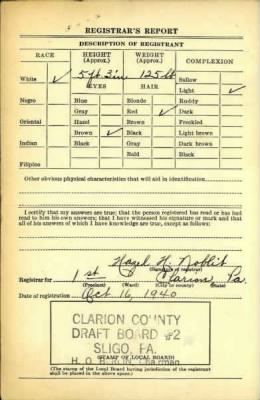 REGISTRAR'S REPORT
DESCRIPTION OF REGISTRANT
RACE HEIGHT (Approx.) WEIGHT (Approx.) COMPLEXION
White ✓ 5 ft 3 in 125 lb Sallow
EYES HAIR Light ✓
Negro Blue Blonde Ruddy
Gray Red ✓ Dark
Oriental Hazel Brown Freckled
Brown ✓ Black Light brown
Indian Black Gray Dark brown
Bald Black
Filipino
Other obvious physical characteristics that will aid in identification
I certify that my answers are true; that the person registered has read or has had
read to him his own answers; that I have witnessed his signature or mark and that
all of his answers of which I have knowledge are true, except as follows:
Hazel H. Noblit
(Signature of registrar)
Registrar for 1st Clarion Pa.
(Precinct) (Ward) (City or county) (State)
Date of registration Oct 16, 1940
CLARION COUNTY
DRAFT BOARD #2
SLIGO, PA.
H. O. Chairman
(STAMP OF LOCAL BOARD)
(The stamp of the Local Board having jurisdiction of the registrant
shall be placed in the above space.)